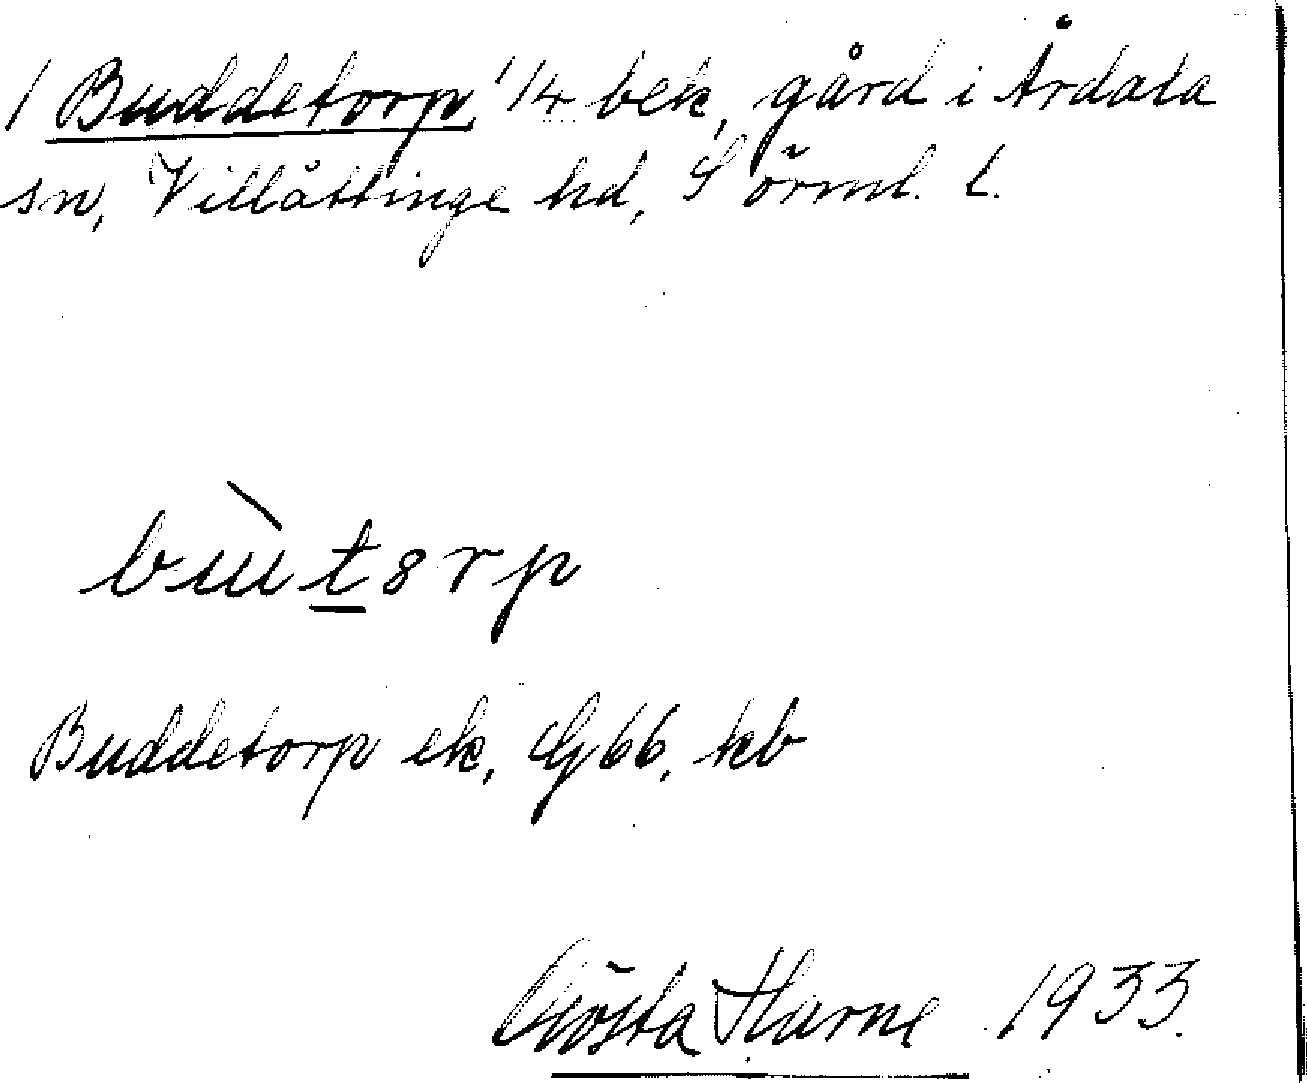 1 Buddetorp 1/4 bek, gård i Årdala
sn, Villåttinge hd, Sörml. l.
bùtorp
Buddetorp ek, G66, kb
Gösta Harne 1933.